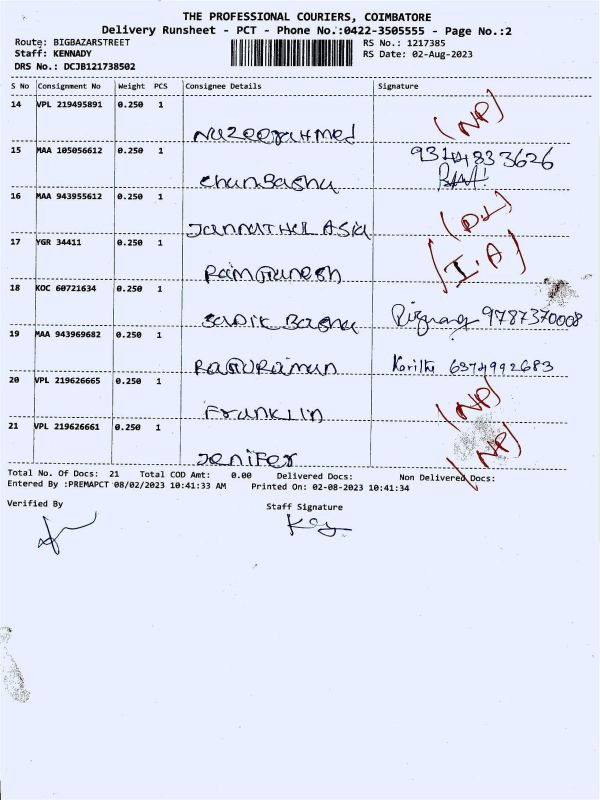 THE PROFESSIONAL COURIERS, COIMBATORE
Delivery Runsheet - PCT - Phone No.:0422-3505555 - Page No.:2
Route: BIGBAZARSTREET RS No.: 1217385
Staff: KENNADY RS Date: 02-Aug-2023
DRS No.: DCJB121738502
S No Consignment No Weight PCS Consignee Details Signature
14 VPL 219495891 0.250 1 (NP)
15 MAA 105056612 0.250 1 ChanBasha
16 MAA 943955612 0.250 1 JannatHul Asia (D.L)
17 YGR 34411 0.250 1 Ram Ganesh (I.A)
18 KOC 60721634 0.250 1 Sadik Basha 9787370008
19 MAA 943969682 0.250 1 Raguraman 6374992683
20 VPL 219626665 0.250 1 Franklin (NP)
21 VPL 219626661 0.250 1 Jenifer (NP)
Total No. Of Docs: 21 Total COD Amt: 0.00 Delivered Docs: Non Delivered Docs:
Entered By :PREMAPCT 08/02/2023 10:41:33 AM Printed On: 02-08-2023 10:41:34
Verified By Staff Signature